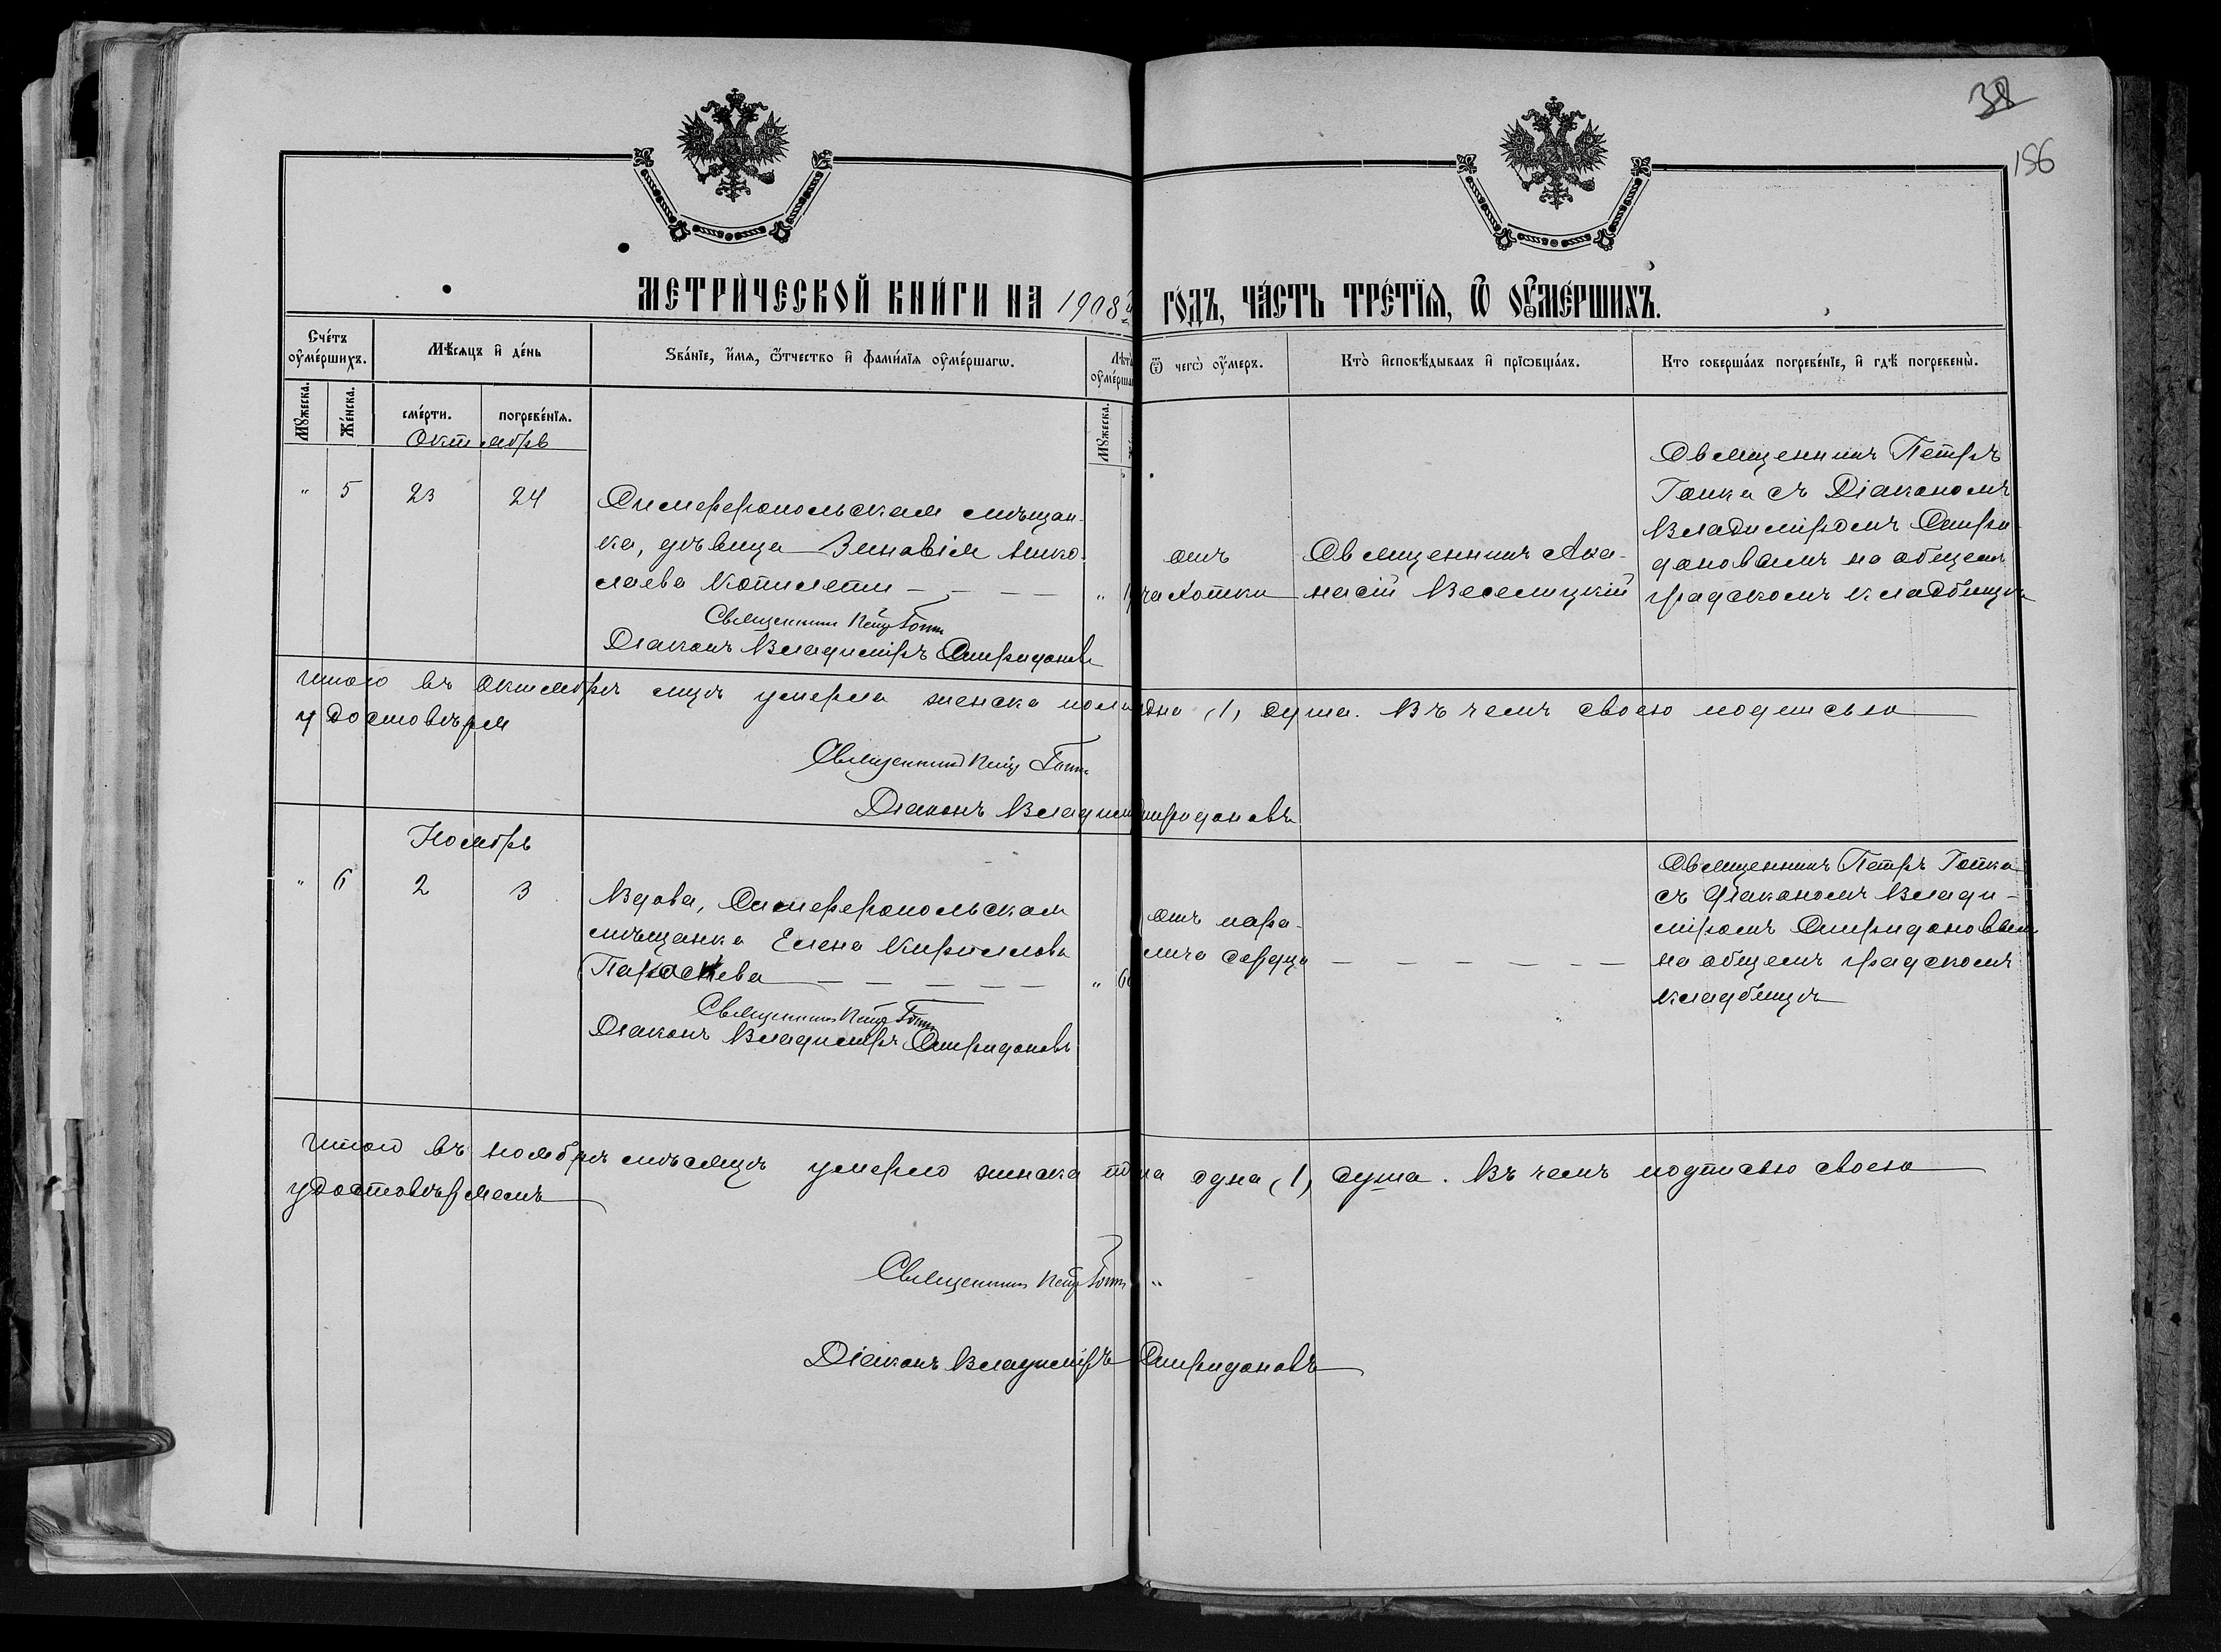 38
156
МЕТРИ́ЧЕСКОЙ КНИ́ГИ НА 1908й ГО́ДЪ, ЧА́СТЬ ТРЕ́ТЇѦ, Ѡ ОУ҆МЕ́РШИХЪ.
Сче́тъ оу҆ме́ршихъ.
Мѣ́сѧцъ и҆ де́нь
Ѕва́нїе, и҆́мѧ, ѻ҆́тчество и҆ фами́лїѧ оу҆ме́ршагѡ.
Лѣ́та оу҆ме́рша
Ѿ чегѡ̀ оу҆́меръ.
Кто̀ и҆сповѣ́дывалъ и҆ прїѡбща́лъ.
Кто соверша́лъ погребе́нїе, и҆ гдѣ̀ погребены̀.
Мꙋ́жеска.
Же́нска.
сме́рти.
погребе́нїѧ.
Мꙋ́жеска.
Октябрь
" 5 23 24
Симферопольская мѣщан-
ка, дѣвица Зиновія Нико-
лаева
Священникъ Петръ Гопка
Діаконъ Владиміръ Спиридоновъ
отъ
чахотки
Священникъ Аѳа-
насій Веселицкій
Священникъ Петръ
Гопка съ Діакономъ
Владиміромъ Спири-
доновымъ на общемъ
градскомъ кладбищѣ
Итого въ Октябрѣ м-цѣ умерла женска пола одна (1) душа. Въ чемъ своею подписью
удостовѣряя
Священникъ Петръ Гопка
Діаконъ Владиміръ Спиридоновъ
Ноябрь
" 6 2 3
Вдова, Симферопольская
мѣщанка Елена Кириллова
"
Священникъ Петръ Гопка
Діаконъ Владиміръ Спиридоновъ
отъ пара-
лича сердца
Священникъ Петръ Гопка
съ Діакономъ Влади-
міромъ Спиридоновымъ
на общемъ градскомъ
кладбищѣ
Итого въ ноябрѣ мѣсяцѣ умерло женска пола одна (1) душа. Въ чемъ подписью своею
удостовѣряемъ
Священникъ Петръ Гопка
Діаконъ Владиміръ Спиридоновъ